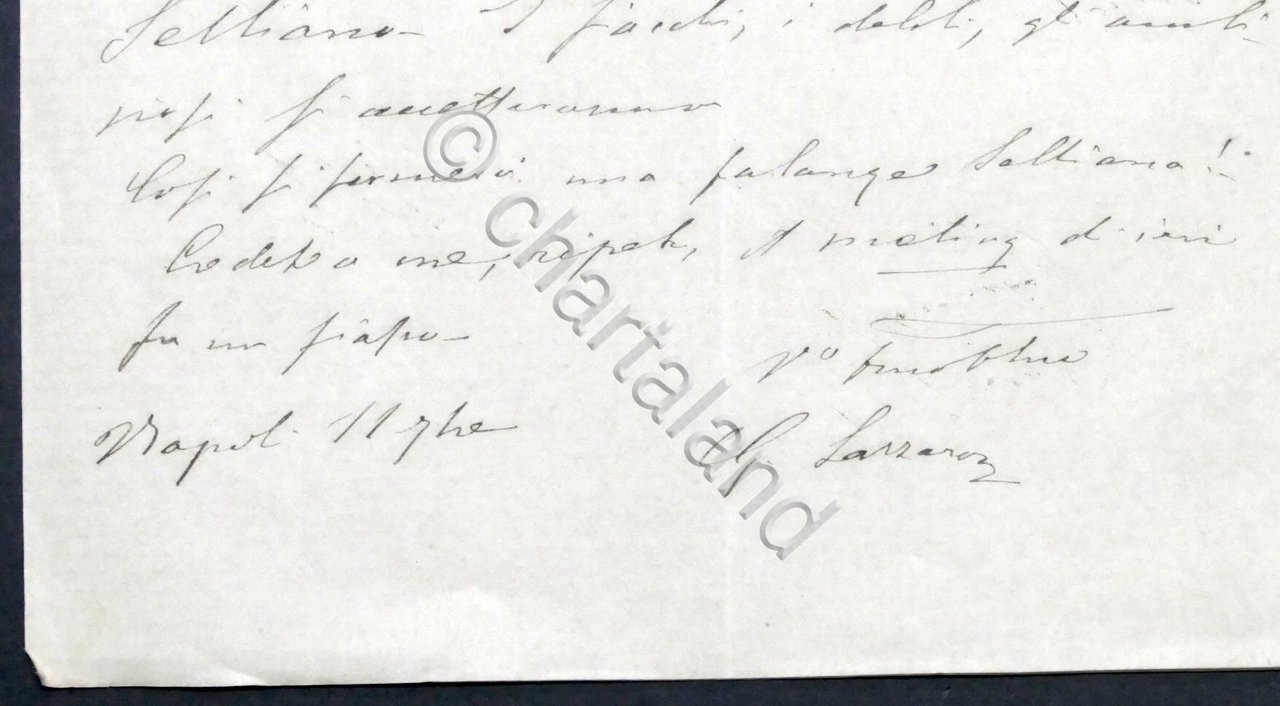 Selliano - I fiacchi, i deboli, gli ambi-
ziosi si accetteranno
Così si formerà una falange Selliana!
Credete a me, ripeto, il meeting di ieri
fu un fiasco -
Napoli 11 7bre
G. Lazzaro
© chartaland